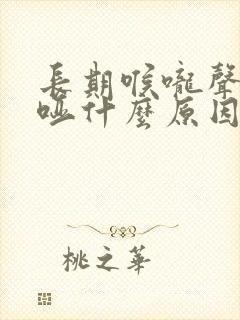 長期喉嚨聲
啞什麼原因
桃之華